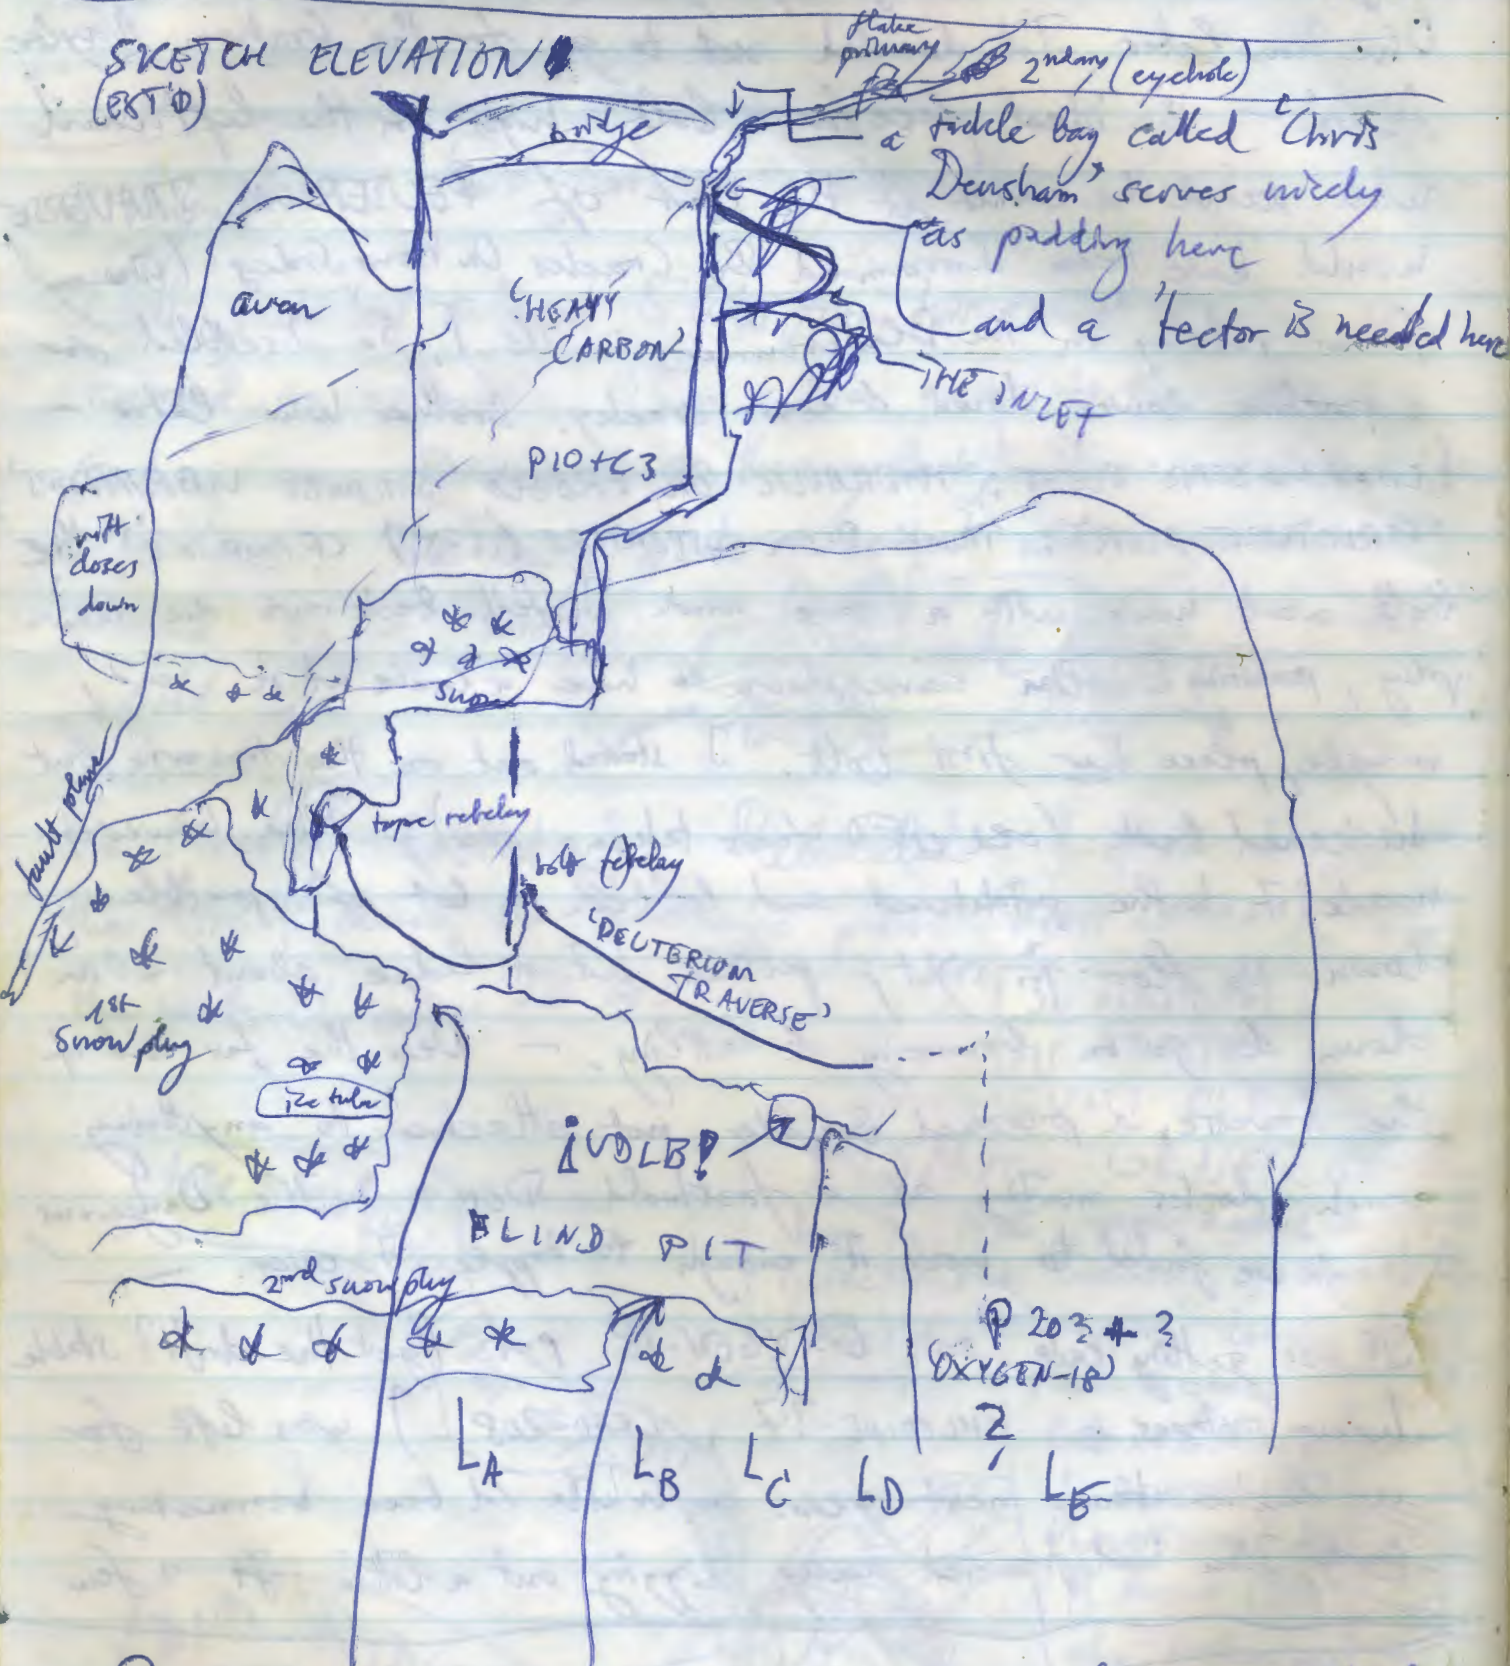 SKETCH ELEVATION
(EST'D)
flake
primary
2ndary (eyehole)
a tickle bag called 'Chris
Densham' serves nicely
as padding here
and a 'tector is needed here
bridge
avon
'HEAVY
CARBON'
THE INLET
P10+C3
rift
closes
down
snow
fault plane
tape rebelay
bolt rebelay
'DEUTERIUM
TRAVERSE'
1st
Snow plug
ice tube
¡VDLB!
BLIND PIT
2nd snow plug
P 20? + ?
'OXYGEN-18'
?
LA
LB
LC
LD
LE